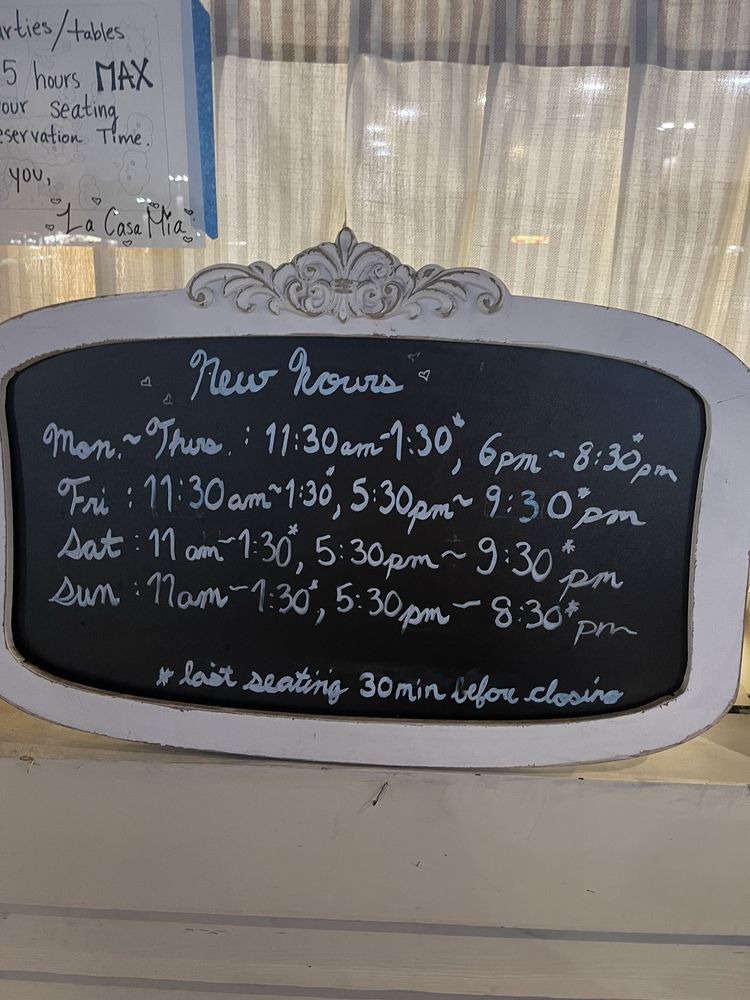 rties/tables
5 hours MAX
our seating
eservation Time.
you,
La Casa Mia
New hours
Mon. ~ Thurs. : 11:30am-1:30*, 6pm ~ 8:30*pm
Fri : 11:30am~1:30*, 5:30pm~ 9:30*pm
Sat : 11am~1:30*, 5:30pm ~ 9:30*pm
Sun : 11am~1:30*, 5:30pm – 8:30*pm
* last seating 30min before closing